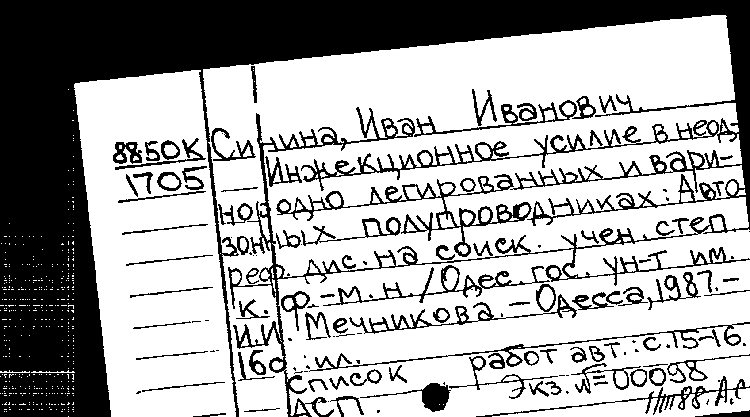 88-50К Синина, Иван Иванович.
1705 Инжекционное усилие в неод-
нородно легированных и вари-
зонных полупроводниках: Авто-
реф. дис. на соиск. учен. степ
к. ф.-м. н. / Одес. гос. ун-т им.
И.И. Мечникова. - Одесса, 1987. -
16с. : ил.
Список работ авт.: с. 15-16.
АСП. Экз. №00098